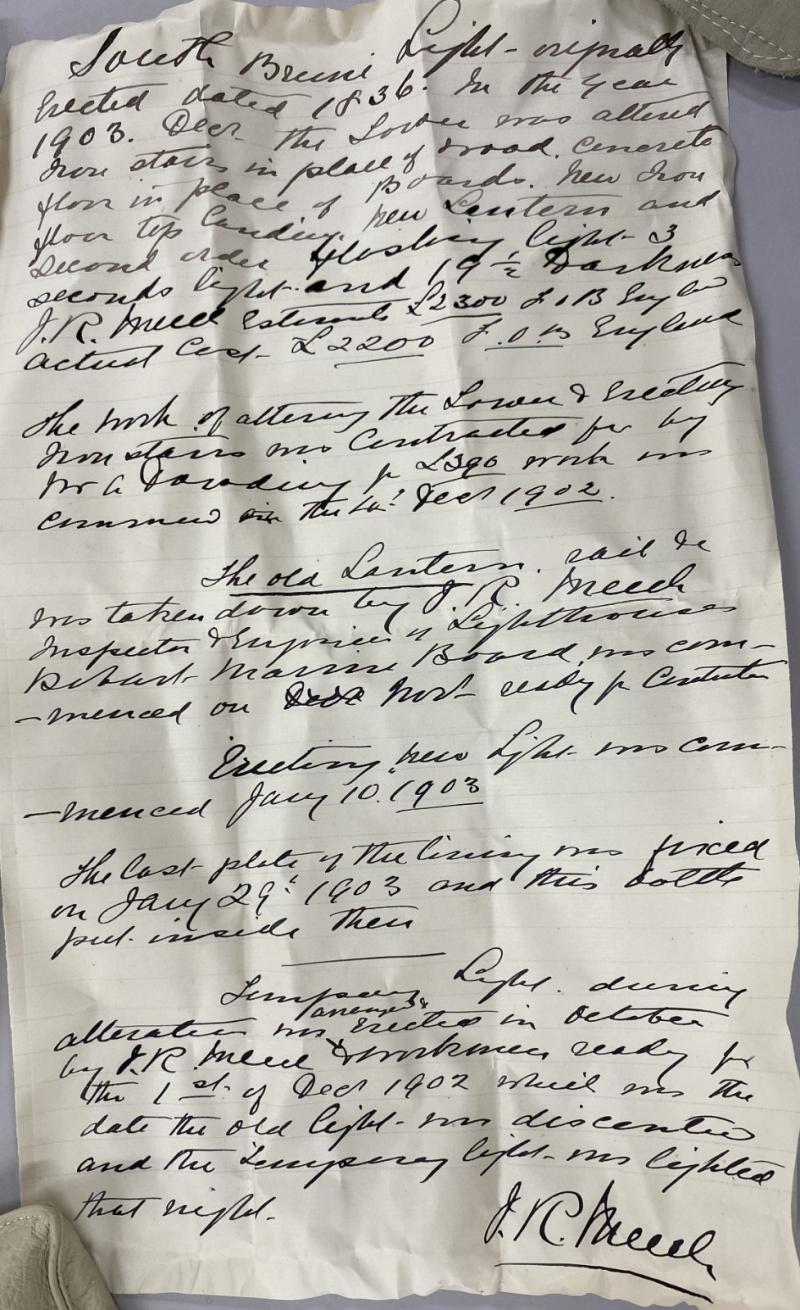 South Bruni Light - originally
Erected dated 1836. In the year
1903. Decr the Tower was altered
Iron stairs in place of wood, concrete
floor in place of Boards. New Iron
floor top landing. New Lantern and
second order flashing light - 3
seconds light. and 19 ½ Darkness
J.R. Meech Estimate £2300 F.O.B England
actual Cost - £2200 F.O.B England
The work of altering the Tower & Erecting
Iron stairs was Contracted for by
Mr for £390 work was
in the Decr 1902.
The old Lantern. rail &c
was taken down by J R Meech
Inspector & Engineer of Lighthouses
Hobart Marine Board was com-
-menced on Novr ready for Contractor
Erecting new Light was com-
-menced Jany 10. 1903
The last plate of the lining was fixed
on Jany 29th 1903 and this bottle
put inside then
Tempory Light. during
alteration was arranged & Erected in October
by J.R. Meech & workmen ready for
the 1st. of Decr 1902 which was the
date the old light - was discontind
and the Tempory light - was lighted
that night.
J. R. Meech